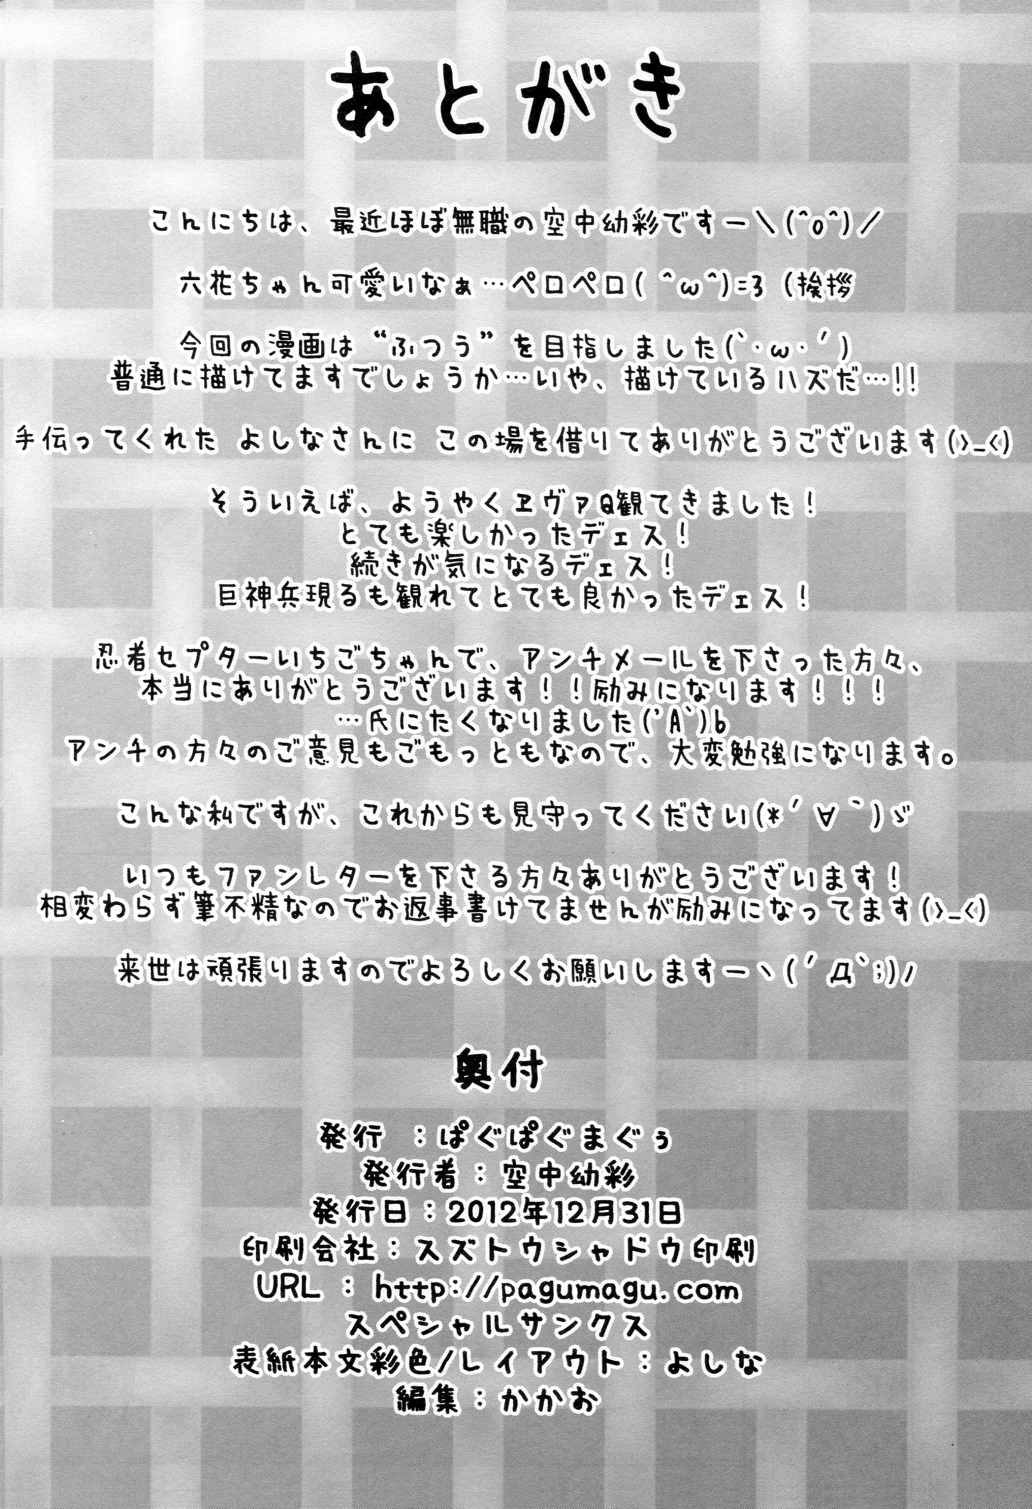 あとがき
こんにちは、最近ほぼ無職の空中幼彩ですー＼(^o^)／
六花ちゃん可愛いなぁ…ペロペロ( ^ω^)=3 (挨拶
今回の漫画は“ふつう”を目指しました(｀・ω・´)
普通に描けてますでしょうか…いや、描けているハズだ…!!
手伝ってくれた よしなさんに この場を借りてありがとうございます(>_<)
そういえば、ようやくヱヴァQ観てきました！
とても楽しかったデェス！
続きが気になるデェス！
巨神兵現るも観れてとても良かったデェス！
忍者セプターいちごちゃんで、アンチメールを下さった方々、
本当にありがとうございます！！励みになります！！！
…氏にたくなりました('A`)b
アンチの方々のご意見もごもっともなので、大変勉強になります。
こんな私ですが、これからも見守ってください(*´∀｀)ゞ
いつもファンレターを下さる方々ありがとうございます！
相変わらず筆不精なのでお返事書けてませんが励みになってます(>_<)
来世は頑張りますのでよろしくお願いしますーヽ(´Д`;)ﾉ
奥付
発行 ：ぱぐぱぐまぐぅ
発行者：空中幼彩
発行日：2012年12月31日
印刷会社：スズトウシャドウ印刷
URL ： http://pagumagu.com
スペシャルサンクス
表紙本文彩色/レイアウト：よしな
編集：かかお